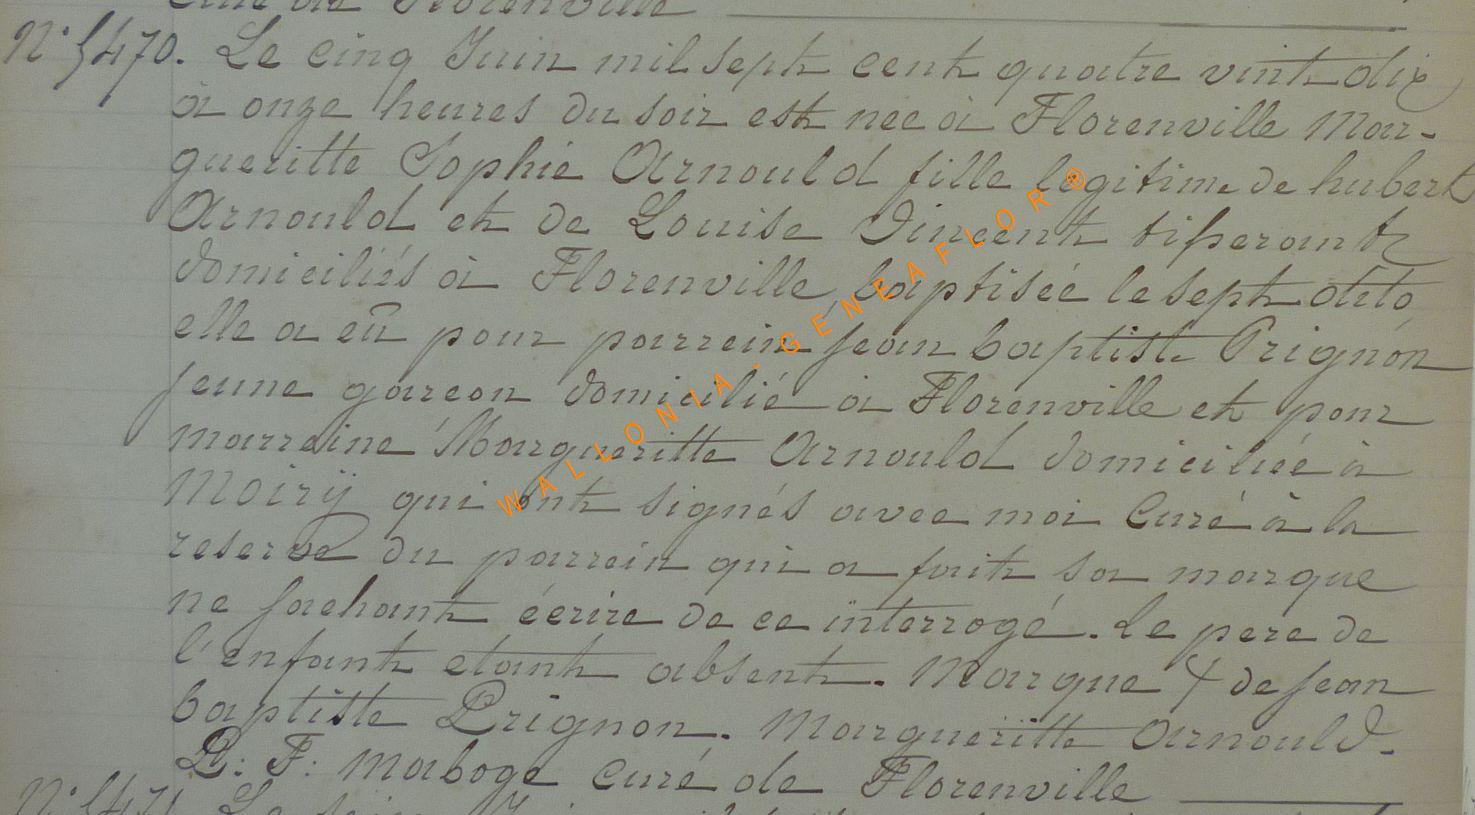 Curé de Florenville
N° 5470. Le cinq Juin mil sept cent quatre vint dix
à onze heures du soir est nee à Florenville Mar-
gueritte Sophie Arnould fille legitime de hubert
Arnould et de Louise Vincent tisserants
domiciliés à Florenville, baptisée le sept dito,
elle a eû pour parrein jean baptiste Prignon
jeune garcon domicilié à Florenville et pour
marreine Margueritte Arnould domiciliée à
Moirÿ qui ont signés avec moi Curé à la
reserve du parrein qui a fait sa marque
ne sachant écrire de ce interrogé. Le pere de
l'enfant etant absent. Marque + de jean
baptiste Prignon. Margueritte Arnould.
P: F: Maboge curé de Florenville
N° 5471 Le Juin mil
WALLONIA - GENEAFLOR®